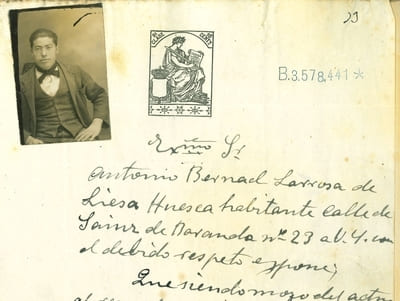 23
B.3.578,441 *
Exmo Sr
Antonio Bernad Larrosa de
Liesa Huesca habitante Calle de
Sainz de Baranda nº 23 al V. 4. con
el debido respeto expone;
Que siendo mozo del actu